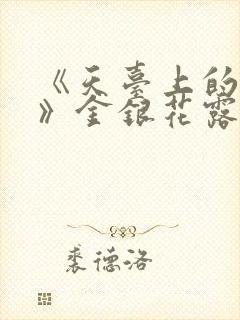 《天臺上的
》金銀花露
裘德洛